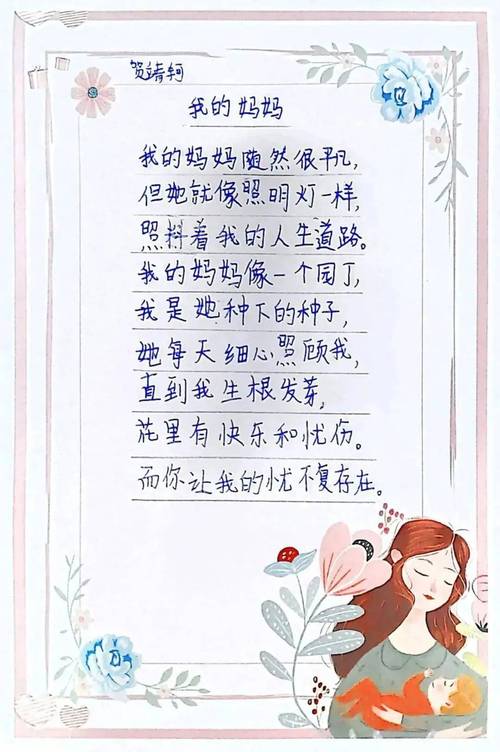 贺靖轲
我的妈妈
我的妈妈随然很平凡,
但她就像照明灯一样,
照抖着我的人生道路。
我的妈妈像一个园丁,
我是她种下的种子,
她每天细心照顾我,
直到我生根发芽,
花里有快乐和忧伤。
而你让我的忧不复存在。